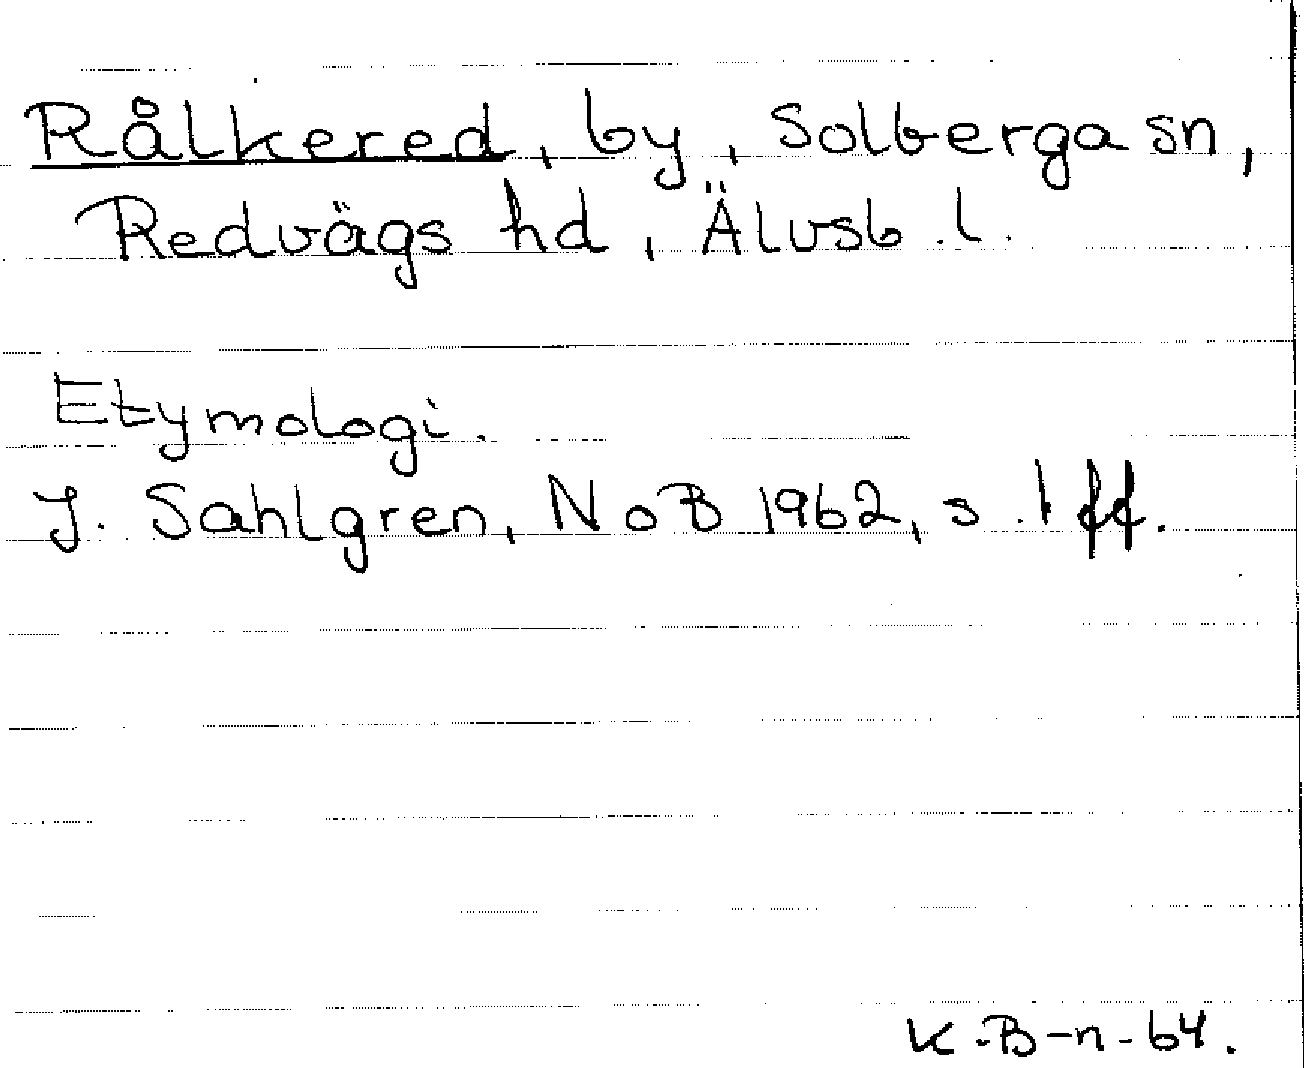 Rålkered, by, Solberga sn,
Redvägs hd, Älvsb. l.
Etymologi.
J. Sahlgren, NoB 1962, s. 1 ff.
K.B-n-64.